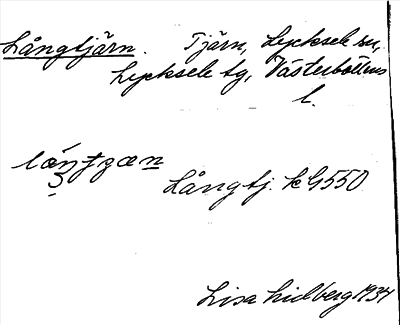 Långtjärn. Tjärn, Lycksele sn,
Lycksele tg, Västerbottens
l.
Långtj. k G550
Lisa Lidberg 1934